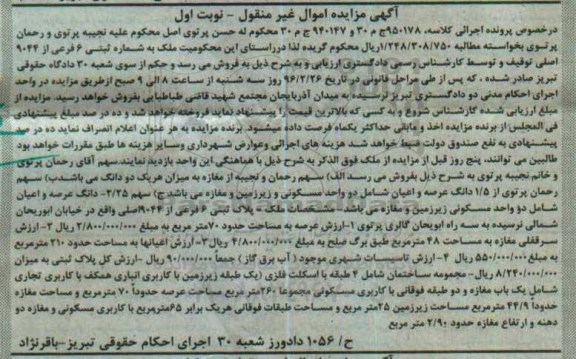 آگهی مزایده اموال غیر منقول - نوبت اول
درخصوص پرونده اجرائی کلاسه، ۹۵۰۱۷۸ج م ۳۰ و ۹۴۰۱۴۷ ج م ۳۰ محکوم له حسن پرتوی اصل محکوم علیه نجیبه پرتوی و رحمان
پرتوی بخواسته مطالبه ۱/۲۴۸/۳۰۸/۷۵۰ریال محکوم گریده لذا درراستای این محکومیت ملک به شماره ثبتی ۶ فرعی از ۹۰۴۴
اصلی توقیف و توسط کارشناس رسمی دادگستری ارزیابی و به شرح ذیل به فروش می رسد و حکم از سوی شعبه ۳۰ دادگاه حقوقی
تبریز صادر شده ، که پس از طی مراحل قانونی در تاریخ ۹۶/۲/۲۶ روز سه شنبه از ساعت ۸ الی ۹ صبح ازطریق مزایده در واحد
اجرای احکام مدنی دو دادگستری تبریز نرسیده به میدان آذربایجان مجتمع شهید قاضی طباطبایی بفروش خواهد رسید. مزایده از
مبلغ ارزیابی شده کارشناس شروع و به کسی که بالاترین قیمت را پیشنهاد نماید فروخته خواهد شد و ده در صد مبلغ پیشنهادی
فی المجلس از برنده مزایده اخذ و مابقی حداکثر یکماه فرصت داده میشود. برنده مزایده به هر عنوان اعلام انصراف نماید ده در صد
پیشنهادی به نفع صندوق دولت ضبط خواهد شد هزینه های اجرائی وعوارض شهرداری وسایر هزینه ها طبق مقررات خواهد بود
طالبین می توانند، پنج روز قبل از مزایده از ملک فوق الذکر به شرح ذیل با هماهنگی این واحد بازدید نمایند.سهم آقای رحمان پرتوی
و خانم نجیبه پرتوی به شرح ذیل بفروش می رسد. الف) سهم رحمان و نجیبه از مغازه به میزان هریک دو دانگ می باشدب) سهم
رحمان پرتوی از ۱/۵ دانگ عرصه و اعیان شامل دو واحد مسکونی و زیرزمین و مغازه می باشد ج) سهم ۲/۲۵- دانگ عرصه و اعیان
شامل دو واحد مسکونی زیرزمین و مغازه می باشد - مشخصات ملک- پلاک ثبتی ۶ فرعی از ۹۰۴۴اصلی واقع در خیابان ابوریحان
شمالی نرسیده به سه راه ابوریحان گالری پرتوی ۱-ارزش عرصه به مساحت حدود ۷۰متر مربع به مبلغ ۲/۸۰۰/۰۰۰/۰۰۰ ریال ۲- ارزش
سرقفلی مغازه به مساحت ۴۸ مترمربع طبق برگ صلح به مبلغ ۴/۸۰۰/۰۰۰/۰۰۰ ریال۳- ارزش اعیانها به مساحت حدود ۲۱۰ مترمربع
به مبلغ ۵۵۰/۰۰۰/۰۰۰ ریال ۴- ارزش تاسیسات شهری موجود ( آب برق گاز ) جمعاً ۹۰/۰۰۰/۰۰۰ ریال -ارزش کل پلاک ثبتی به میزان
۸/۲۴۰/۰۰۰/۰۰۰ ریال- مجموعه ساختمان شامل ۴ طبقه با اسکلت فلزی (یک طبقه زیرزمین با کاربری انباری همکف با کاربری تجاری
شامل یک باب مغازه و دو طبقه فوقانی با کاربری مسکونی مجموعا ۲۶۰متر مربع مساحت عرصه حدوداً ۷۰ مترمربع و مساحت مغازه
حدوداً ۴۴/۹ مترمربع مساحت زیرزمین ۲۵متر مربع و مساحت طبقات فوقانی هریک برابر ۶۵مترمربع با کاربری مسکونی و مغازه دو
دهنه و ارتفاع مغازه حدود ۲/۹۰ متر مربع
ح/ ۱۰۵۶ دادورز شعبه ۳۰ اجرای احکام حقوقی تبریز-باقرنژاد